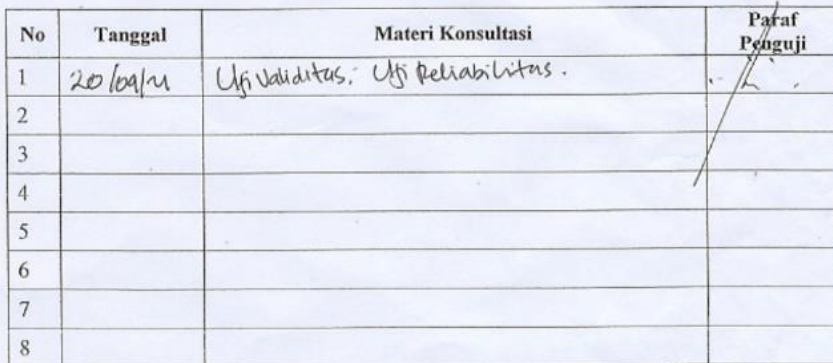 No Tanggal Materi Konsultasi Paraf Penguji
1 20/09/21 Uji Validitas; Uji Reliabilitas.
2
3
4
5
6
7
8